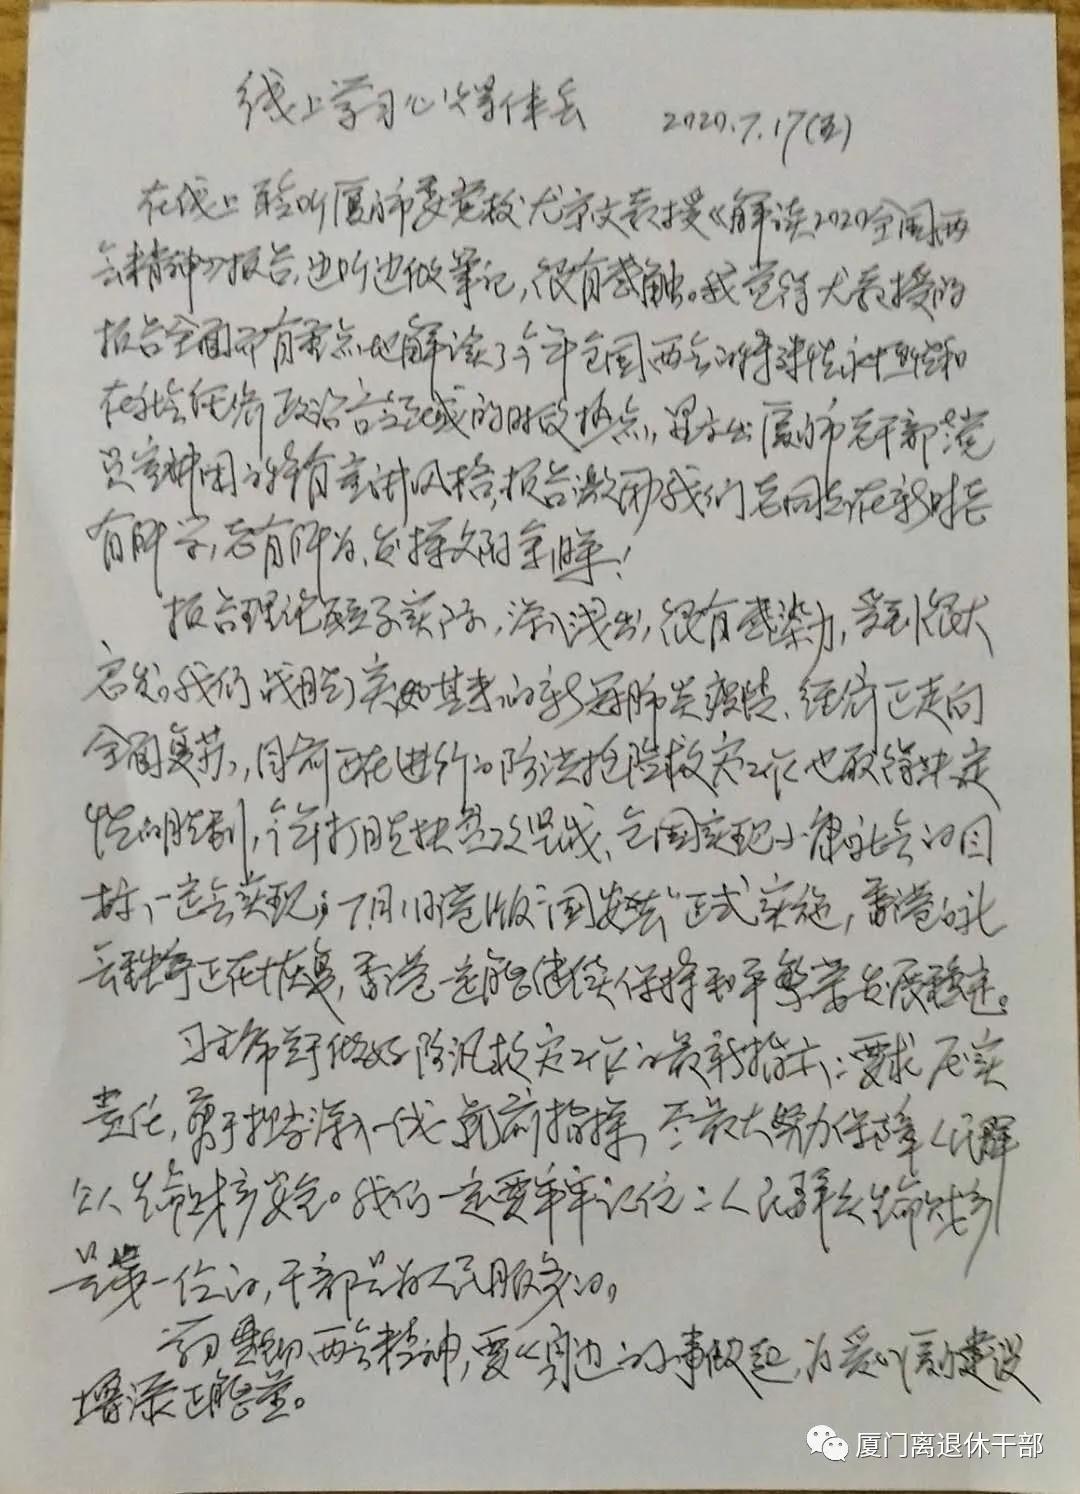 线上学习心得体会 2020.7.17(五)
在线上聆听厦门市委党校尤京文教授《解读2020全国两
会精神》报告，边听边做笔记，很有感触。我觉得尤教授的
报告全面而有重点地解读了今年全国两会的特殊性
在社会经济政治言论领域的时政热点，显示出厦门市老干部党
员宣讲团的特有宣讲风格，报告激励我们老同志在新时代老
有所学，老有所为，发挥文附余晖！
报告理论联系实际，深入浅出，很有感染力，受到很大
启发。我们战胜了突如其来的新冠肺炎疫情、经济正走向
全面复苏，目前正在进行的防洪抢险救灾工作也取得决定
性的胜利，今年打胜扶贫攻坚战、全国实现小康社会的目
标，一定会实现；7月1日港版"国安法"正式实施，香港的社
会秩序正在恢复，香港一定能继续保持和平繁荣发展稳定。
习主席关于做好防汛救灾工作的最新指示：要求压实
责任，勇于担当深入一线靠前指挥，尽最大努力保障人民群
众生命财产安全。我们一定要牢牢记住：人民群众生命财产
是第一位的，干部是为人民服务的。
学习贯彻两会精神，要从身边的小事做起，为爱的厦门建设
增添正能量。
厦门离退休干部